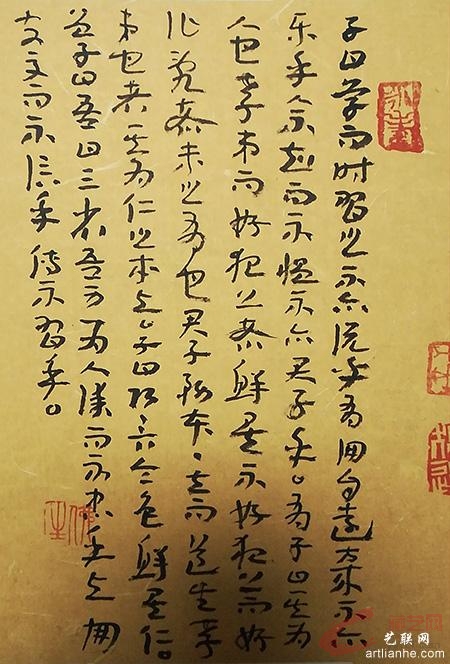 子曰学而时習之不亦说乎有朋自遠方来不亦
乐乎人不知而不愠不亦君子乎。有子曰其为
人也孝弟而好犯上者鲜矣不好犯上而好
作乱者未之有也君子務本、立而道生孝
弟也者其为仁之本与。子曰巧言令色鲜矣仁。
曾子曰吾日三省吾身为人谋而不忠乎与朋
友交而不信乎传不習乎。
艺联网
artlianhe.com